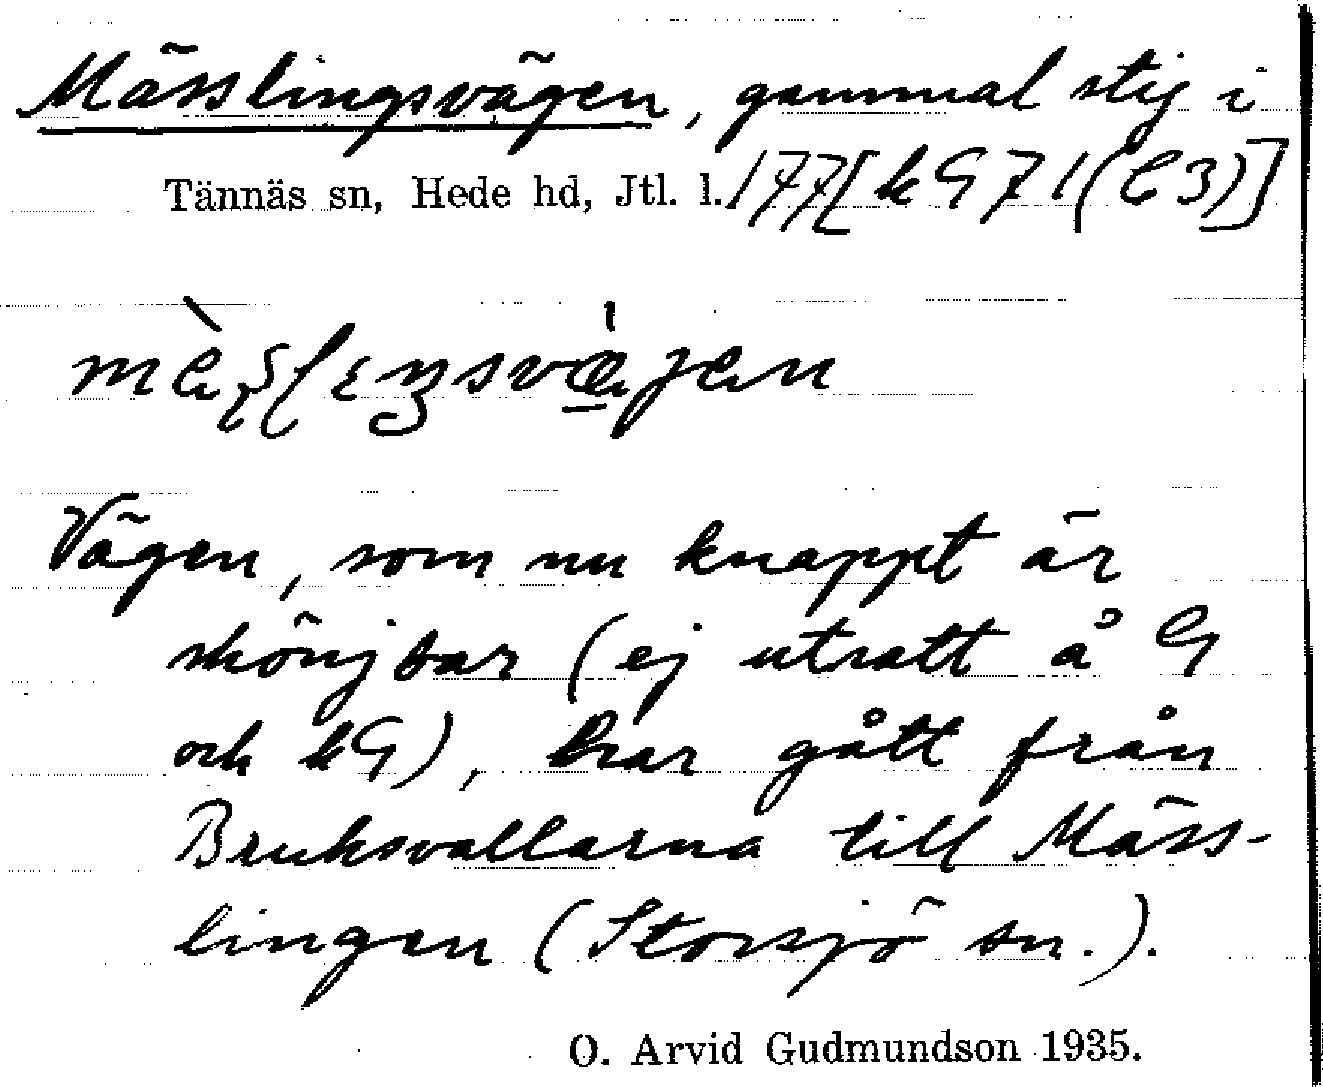 Mässlingsvägen, gammal stig i
Tännäs sn, Hede hd, Jtl. l. 177[kG71(C3)]
Vägen, som nu knappt är
skönjbar (ej utsatt å G
och kG), har gått från
Bruksvallarna till Mäss-
lingen (Storsjö sn.).
O. Arvid Gudmundson 1935.